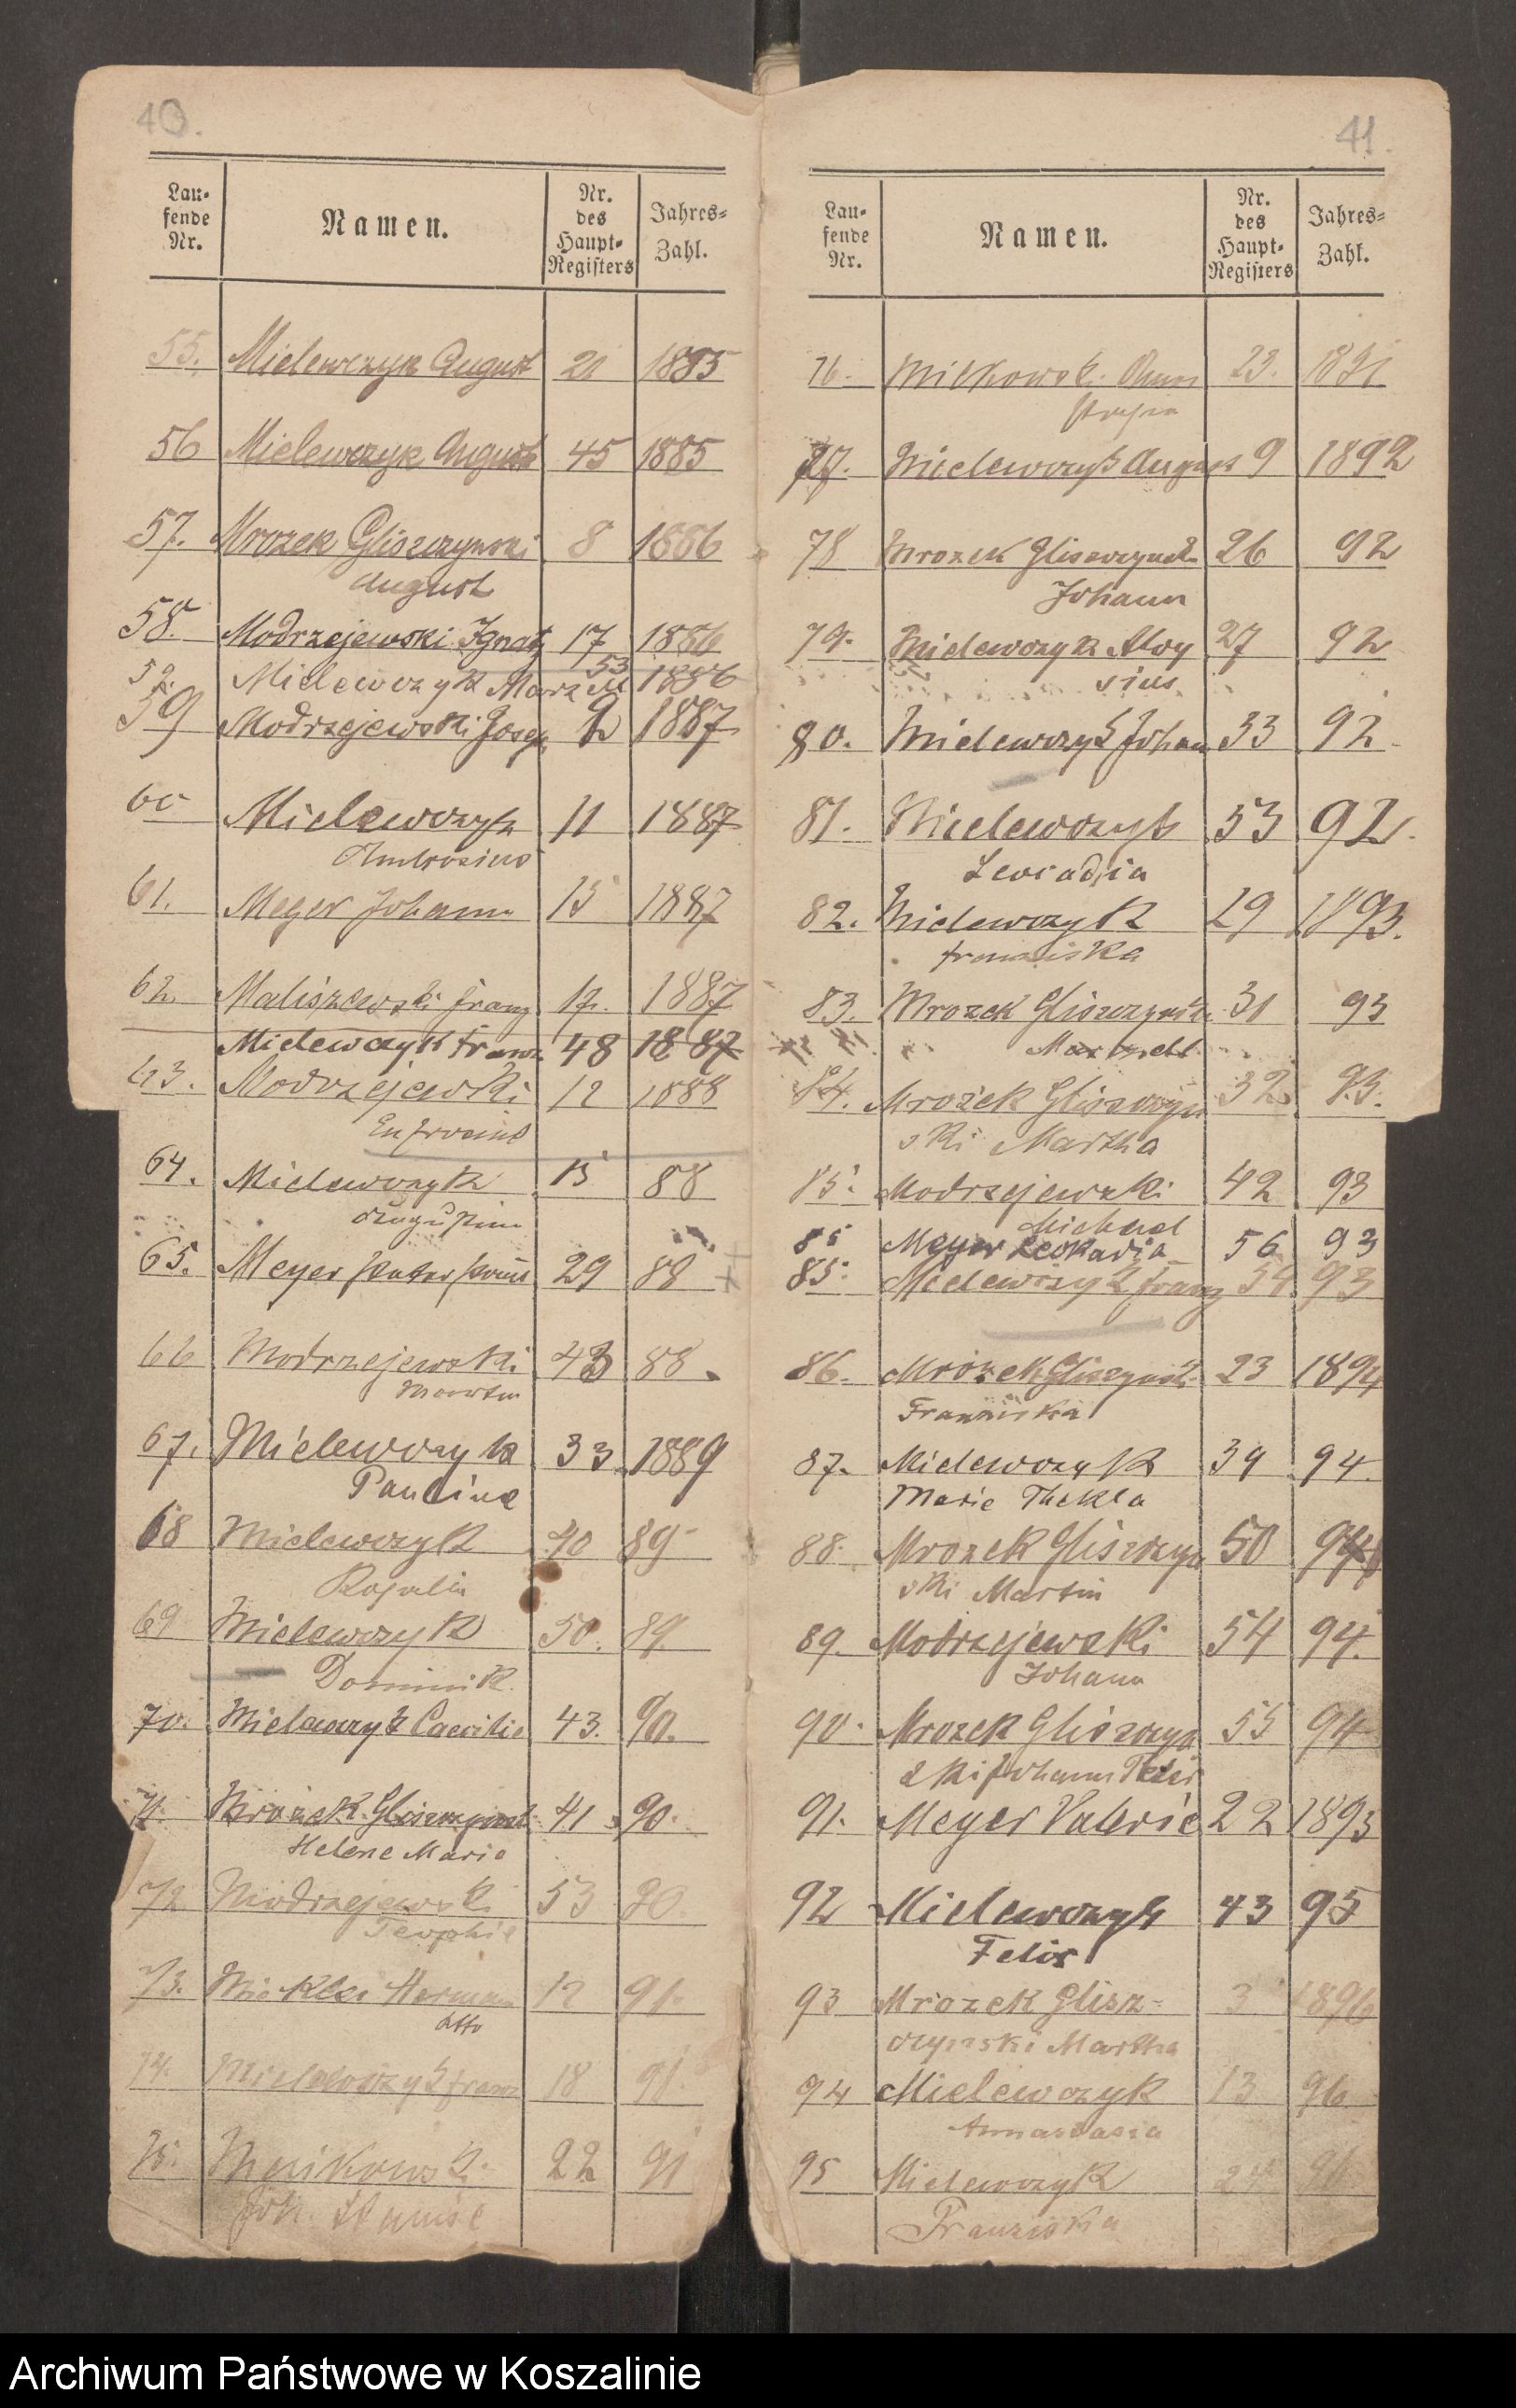 40.
Lau-
fende
Nr.
Namen.
Nr.
des
Haupt-
Registers
Jahres-
Zahl.
55. Mielewczyk August 21 1885
56 Mielewczyk August 45 1885
57. Mrozek Gliszczynski 8 1886
August
58. Modrzejewski Ignatz 17 1886
59. Mielewczyk 53 1886
59 Modrzejewski Josep 2 1887
60 Mielewczyk 11 1887
Ambrosius
61. Meyer Johann 15 1887
62. Maliszewski Franz 17. 1887
Mielewczyk Franz 48 1887
63. Modrzejewski 12 1888
Eufrosine
64. Mielewczyk 15 88
65. Meyer 29 88
66 Modrzejewski 43 88
Martin
67. Mielewczyk 33 1889
Pauline
68 Mielewczyk 40 89
Rosalia
69 Mielewczyk 50. 89.
Dominik.
70. Mielewczyk Caecilie 43. 90.
71. Mrozek Gliszczynski 41 90.
Helene Marie
72 Modrzejewski 53 90.
Teophil
73. Herman 12 91.
Otto
74. Mielewczyk Franz 18 91.
75. 22 91
Joh.
41.
Lau-
fende
Nr.
Namen.
Nr.
des
Haupt-
Registers
Jahres-
Zahl.
76. 23. 1891
77. Mielewczyk August 9 1892
78 Mrozek Gliszczynski 26 92
Johann
79. Mielewczyk Aloy 27 92
sius
80. Mielewczyk Johann 33 92.
81. Mielewczyk 53 92.
Leocadia
82. Mielewczyk 29 1893.
Franziska
83. Mrozek Gliszczynski 31 93
84. Mrozek Gliszczyn 32 93.
ski Martha
85. Modrzejewski 42 93
Michael
85 Meyer Leokadia 56 93
85. Mielewczyk Franz 59 93
86. Mrozek Gliszczynski 23 1894
Franziska
87. Mielewczyk 39 94.
Marie Thekla
88. Mrozek Gliszczyn 50 94
ski Martin
89. Modrzejewski 54 94.
Johann
90. Mrozek Gliszczyn 55 94
ski Johann
91. Meyer Valerie 22 1895
92 Mielewczyk 43 95
Felix
93 Mrozek Glisz- 3 1896
czynski Martha
94 Mielewczyk 13 96
Annastasia
95 Mielewczyk 24 96
Franziska
Archiwum Państwowe w Koszalinie